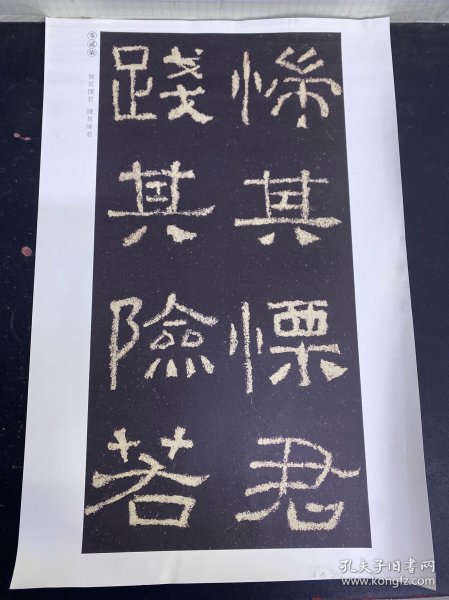 惴其慄君
踐其險若
零贰柒
惴其慄君 踐其險若
孔夫子旧书网
www.kongfz.com